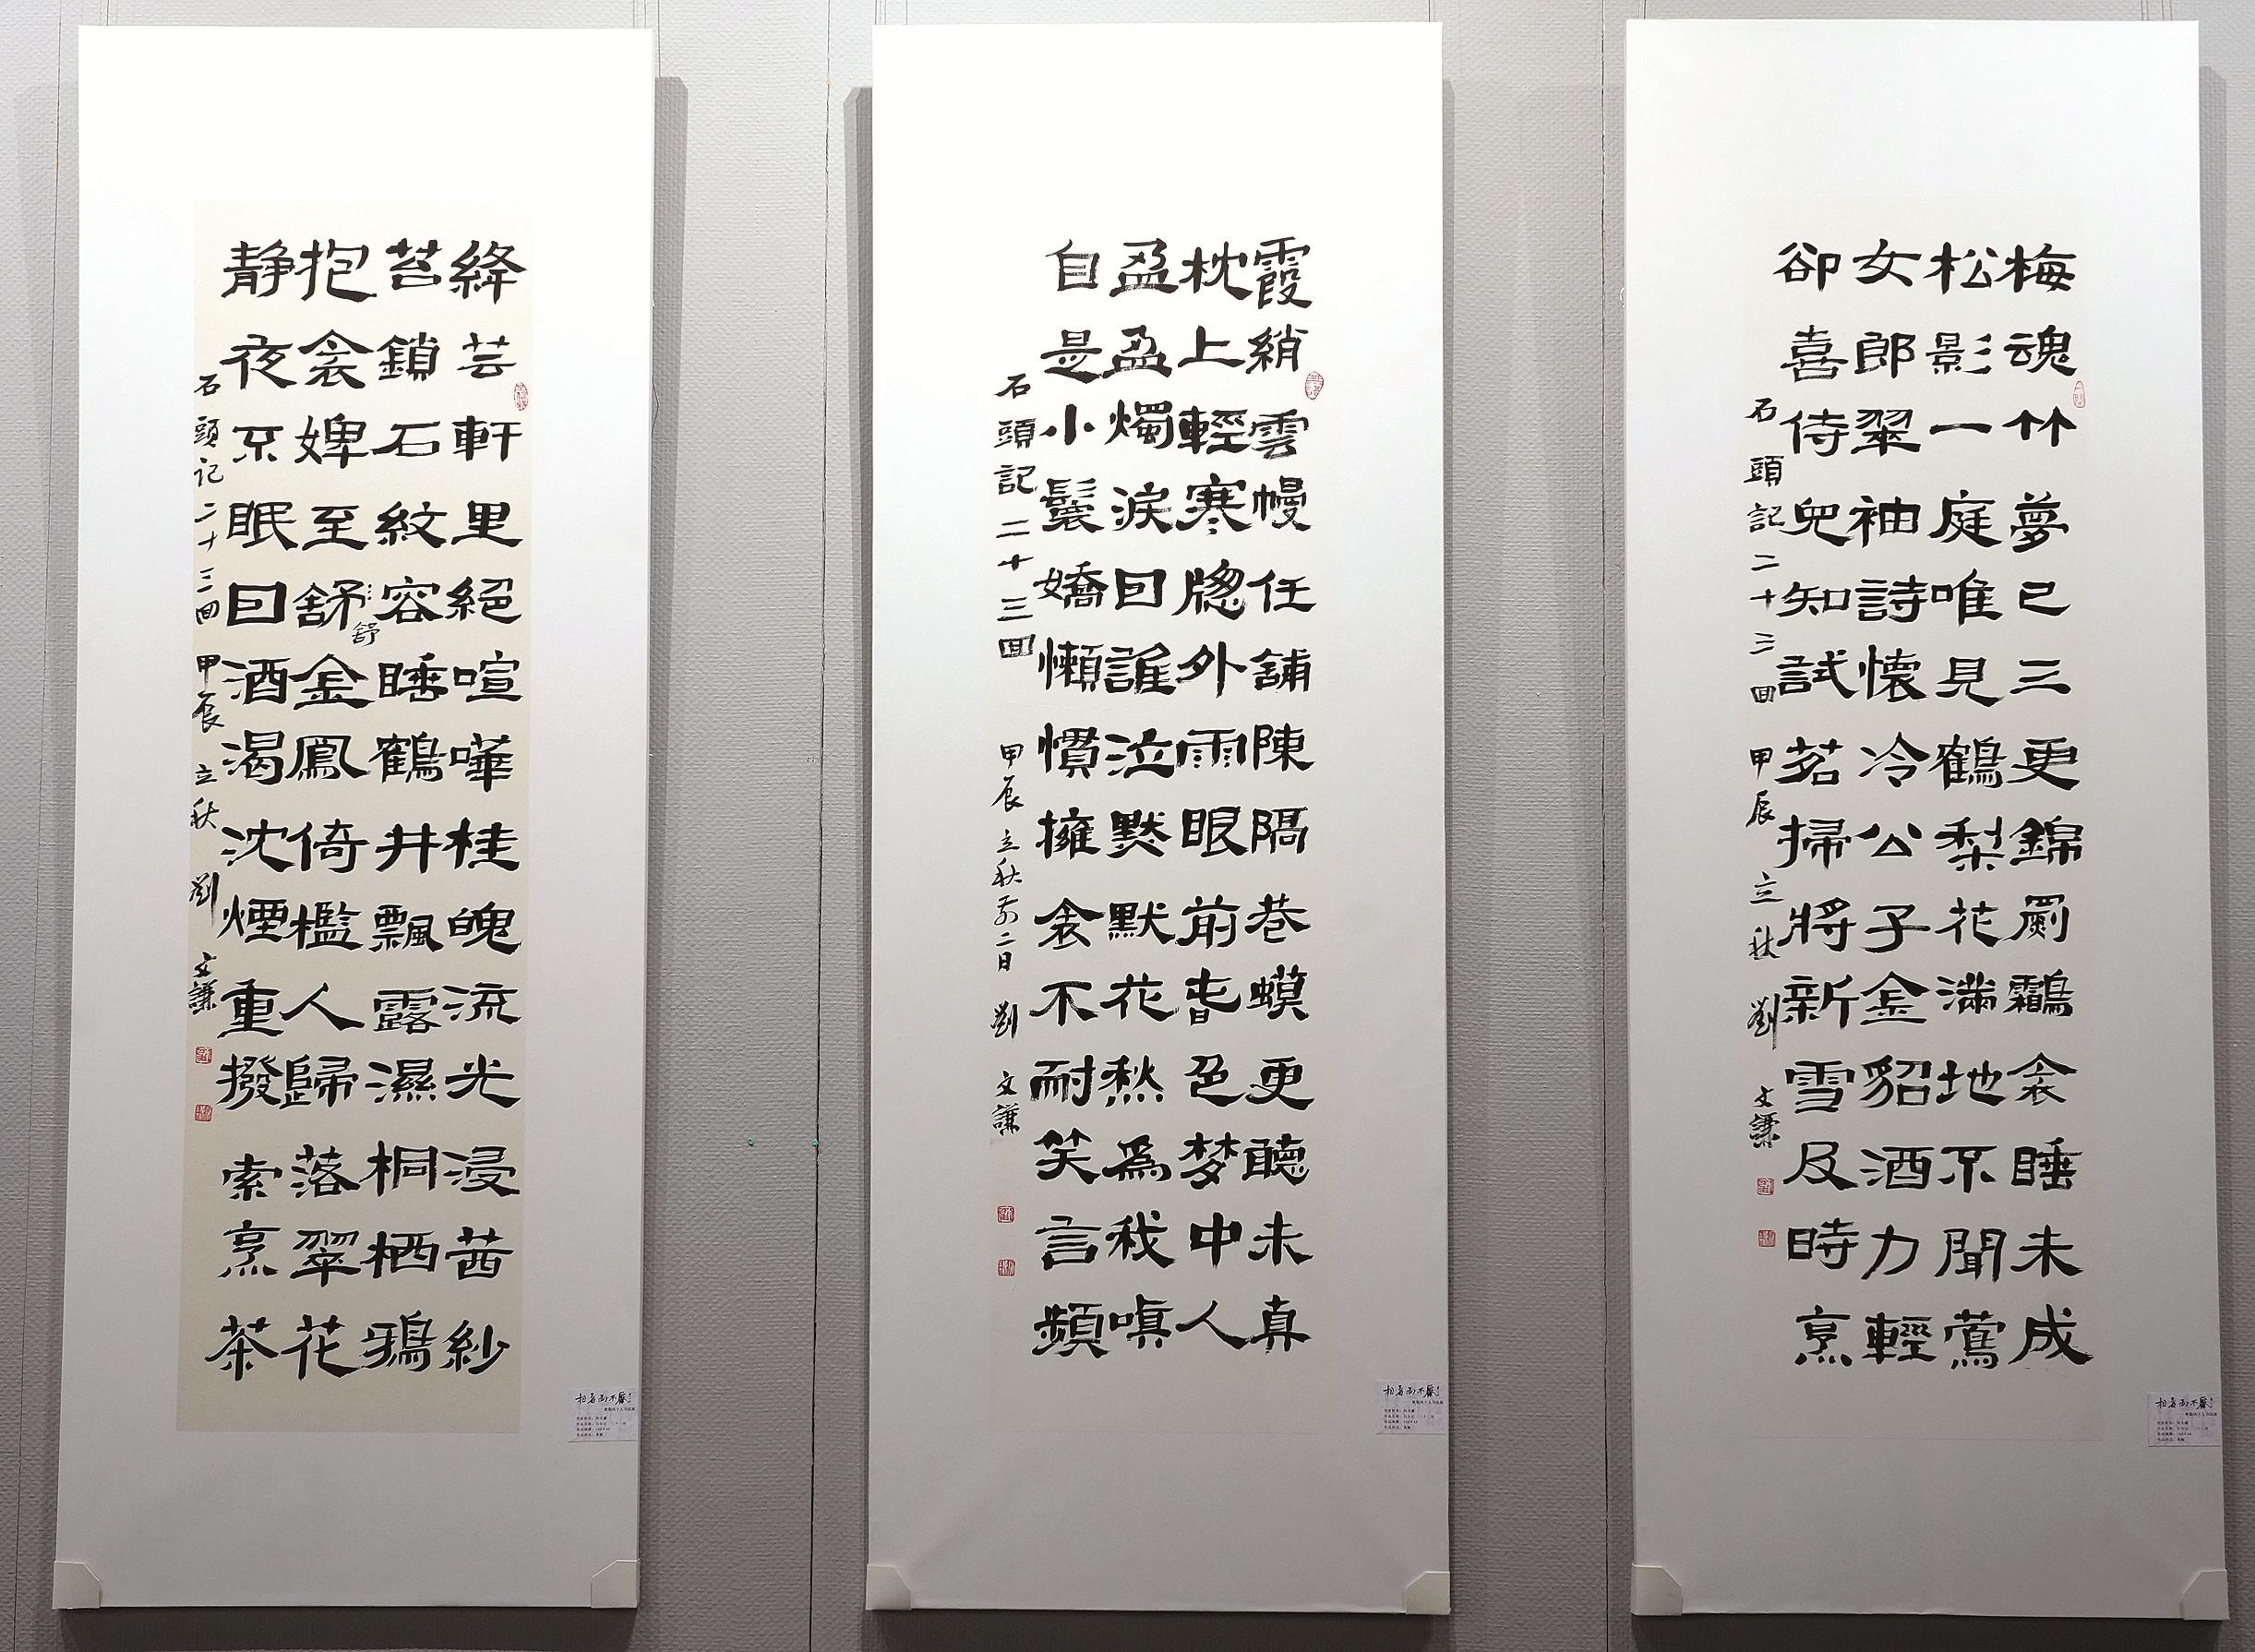 梅魂竹夢已三更錦罽鸘衾睡未成
松影一庭唯見鶴梨花滿地不聞鶯
女郎翠袖詩懷冷公子金貂酒力輕
卻喜侍兒知試茗掃將新雪及時烹
石頭記二十三回 甲辰立秋 劉文謙
相看两不厭
霞綃雲幔任舖陳隔巷蟆更聽未真
枕上輕寒窗外雨眼前春色梦中人
盈盈燭淚囙誰泣黙默花愁為我嗔
自是小鬟嬌懶慣擁衾不耐笑言頻
石頭記二十三回 甲辰立秋前二日 劉文謙
相看两不厭
絳芸軒里絕喧嘩桂魄流光浸茜紗
苔鎖石紋容睡鶴井飄露濕桐栖鴉
抱衾婢至舒金鳳倚檻人歸落翠花
舒
静夜不眠囙酒渴沈煙重撥索烹茶
石頭記二十三回 甲辰立秋 劉文謙
相看两不厭